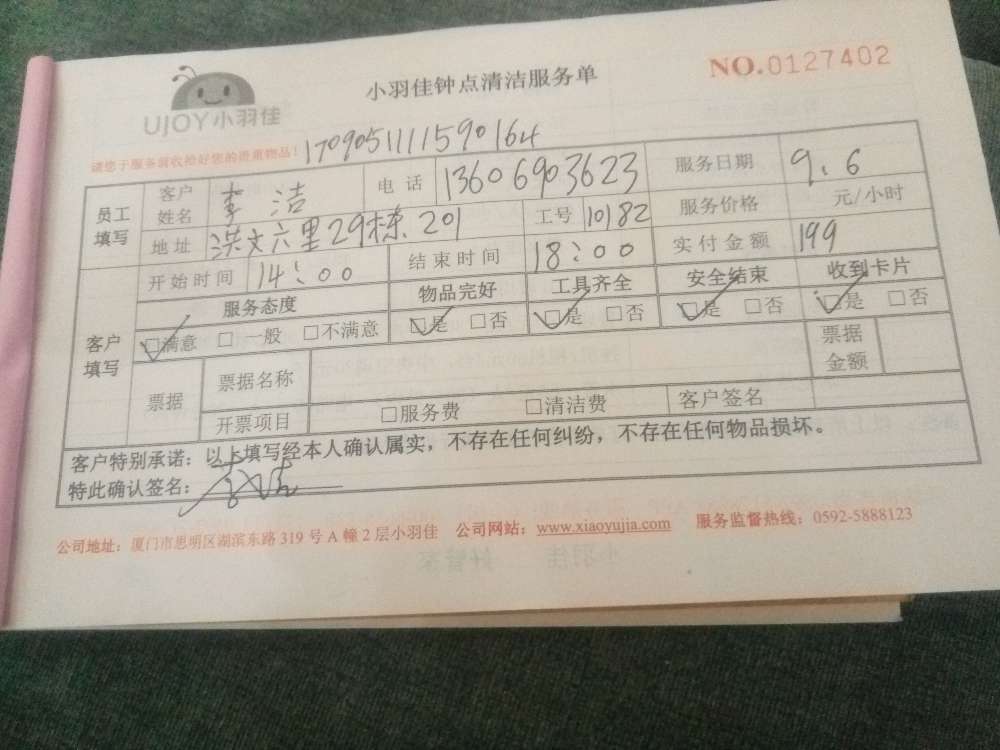 UJOY小羽佳
小羽佳钟点清洁服务单
NO.0127402
请您于服务前收拾好您的贵重物品!
1709051111590164
员工填写 客户姓名 李洁 电话 13606903623 服务日期 9.6
地址 洪文六里29栋201 工号 10182 服务价格 元/小时
客户填写 开始时间 14:00 结束时间 18:00 实付金额 199
服务态度 物品完好 工具齐全 安全结束 收到卡片
☑满意 □一般 □不满意 ☑是 □否 ☑是 □否 ☑是 □否 ☑是 □否
票据 票据名称 票据金额
开票项目 □服务费 □清洁费 客户签名
客户特别承诺:以上填写经本人确认属实,不存在任何纠纷,不存在任何物品损坏。
特此确认签名:李洁
公司地址:厦门市思明区湖滨东路319号A幢2层小羽佳 公司网站:www.xiaoyujia.com 服务监督热线:0592-5888123